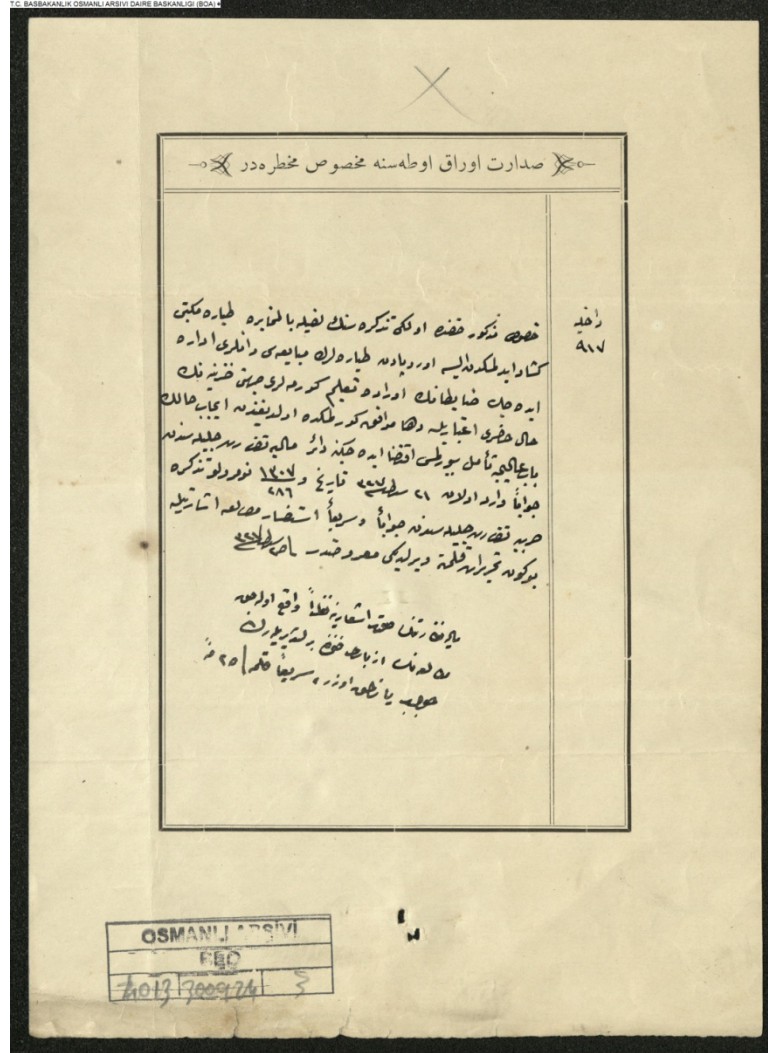 T.C. BASBAKANLIK OSMANLI ARSIVI DAIRE BASKANLIGI (BOA)
صدارت اوراق اوطه‌سنه مخصوص مخطره‌در
داخلیه
٩١٧
خصوص مذکور حقنده اولکی تذکره‌سنك لفیله بالمخابره طیاره مکتبی
کشاد ایدلمکدن ایسه اوروپادن طیاره‌لرك مبایعه‌سی وانلری اداره
ایده‌جك ضابطانك اوراده تعلیم کورمه‌لری جهتی خزینه‌نك
حال حاضری اعتباریله دها موافق کورلمکده اولدیغندن ایجاب حالك
باب عالیجه تأمل بیورلمسی اقتضا ایده‌جکنه دائر مالیه نظارت جلیله‌سندن
جواباً وارد اولان ٢١ ٣٢٧ تاریخ و ١٣٠٧ ٢٨٦ نومرولو تذکره
حربیه نظارت جلیله‌سندن جواباً وسریعاً استحضار مطالعه اشارتیله
بوکون تحریرات قلمنه ویرلدیکی معروضدر ٣٢٧
نظراً واقع اوله‌جق
جواب یازلمق اوزره سریعاً قلمه ٢٥
OSMANLI ARŞİVİ
BEO
4013 300924 3